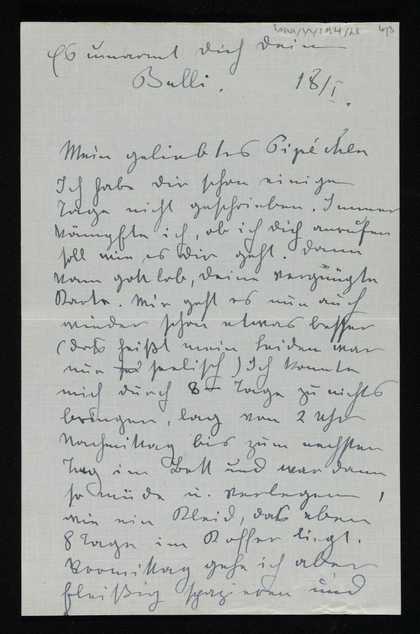 Es umarmt Dich Dein
Bulli. 18/I.
Mein geliebtes Pipéchen
Ich habe dir schon einige
Tage nicht geschrieben. Immer
kämpfte ich, ob ich dich anrufen
soll wie es dir geht. Dann
kam gottlob, deine vergnügte
Karte. Mir geht es nun auch
wieder schon etwas besser
(das heißt mein Leiden war
nur seelisch) Ich konnte
mich durch 8 Tage zu nichts
bringen, lag von 2 Uhr
Nachmittag bis zum nächsten
Tag im Bett und war dann
so müde u. verlegen,
wie ein Kleid, das eben
8 Tage im Koffer liegt.
Vormittag gehe ich aber
fleißig spazieren und